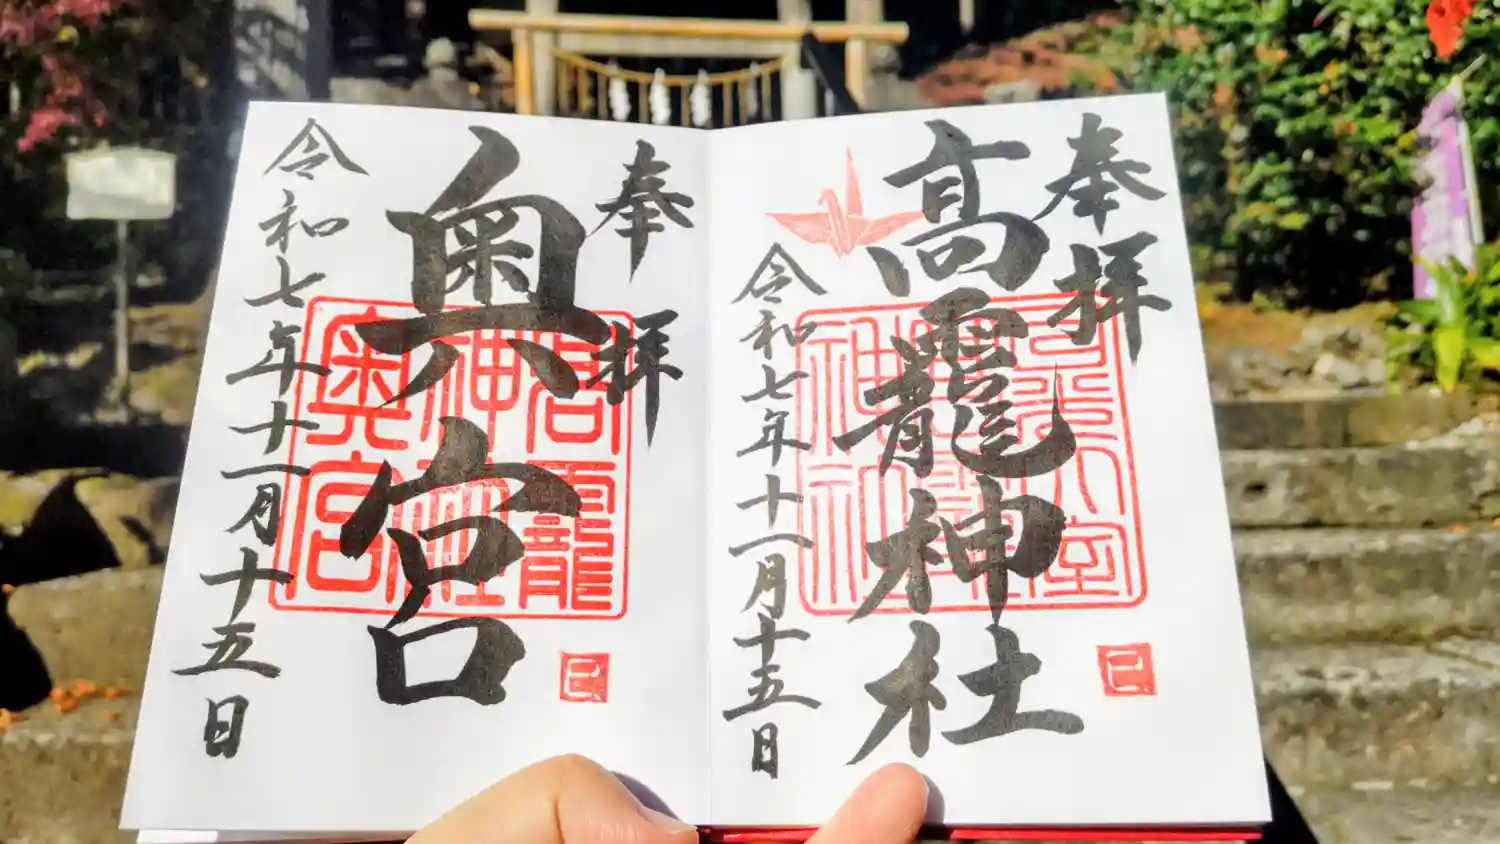 奉拝
高龗神社
令和七年十一月十五日
巳
奉拝
奥宮
令和七年十一月十五日
高龗
神社
奥宮
巳